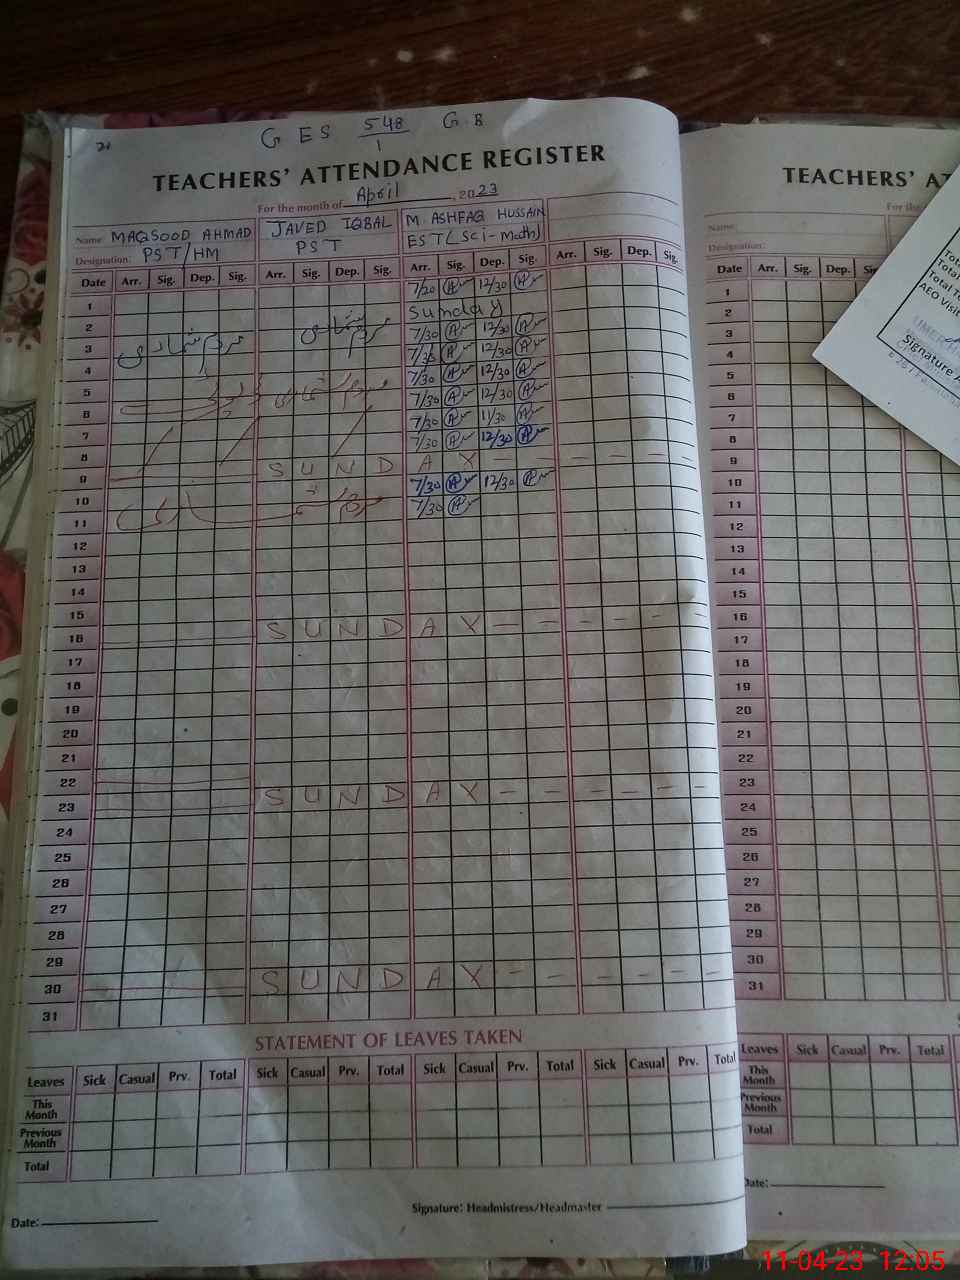 21
G ES 548/1 G.B
TEACHERS' ATTENDANCE REGISTER
For the month of April, 2023
Name: MAQSOOD AHMAD JAVED IQBAL M. ASHFAQ HUSSAIN
Designation: PST/HM PST EST (Sci-Math)
Date Arr. Sig. Dep. Sig. Arr. Sig. Dep. Sig. Arr. Sig. Dep. Sig. Arr. Sig. Dep. Sig.
1 7/20 12/30
2 Sunday
3 مردم شماری مردم شماری 7/30 12/30
4 7/30 12/30
5 مردم شماری 7/30 12/30
6 7/30 12/30
7 7/30 11/30
8 7/30 12/30
9 SUNDAY - - - - - -
10 7/30 12/30
11 7/30
12
13
14
15
16 SUNDAY - - - - - -
17
18
19
20
21
22
23 SUNDAY - - - - - -
24
25
26
27
28
29
30 SUNDAY - - - - - -
31
STATEMENT OF LEAVES TAKEN
Leaves Sick Casual Prv. Total Sick Casual Prv. Total Sick Casual Prv. Total Sick Casual Prv. Total
This Month
Previous Month
Total
Date:
Signature: Headmistress/Headmaster
TEACHERS' AT
For the
Name:
Designation:
Date Arr. Sig. Dep. Sig
1
2
3
4
5
6
7
8
9
10
11
12
13
14
15
16
17
18
19
20
21
22
23
24
25
26
27
28
29
30
31
Leaves Sick Casual Prv. Total
This Month
Previous Month
Total
Date:
Total
Total
Total Te
AEO Visit
UMER
Signature A
11-04-23 12:05